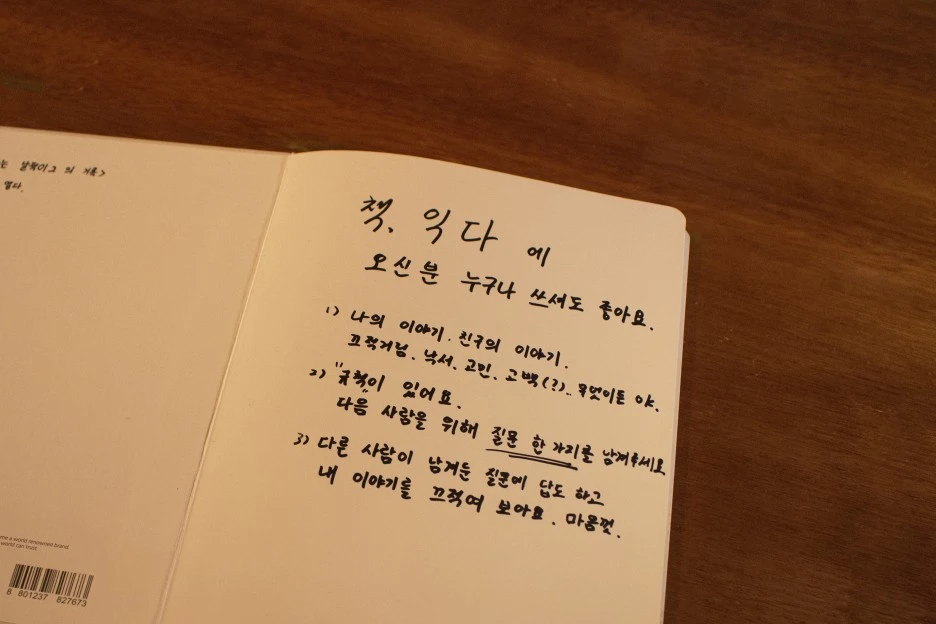 의 기록>
열다.
책, 익다 에
오신분 누구나 쓰셔도 좋아요.
1) 나의 이야기. 친구의 이야기.
끄적거림. 낙서. 고민. 고백(?).. 무엇이든 OK.
2) "규칙"이 있어요.
다음 사람을 위해 질문 한 가지를 남겨주세요
3) 다른 사람이 남겨둔 질문에 답도 하고
내 이야기를 끄적여 보아요. 마음껏.
me a world renowned brand
world can trust
8 801237 827673